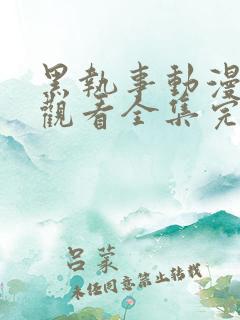 黑執事動漫
觀看全集完
呂蒙
未经同意禁止转载